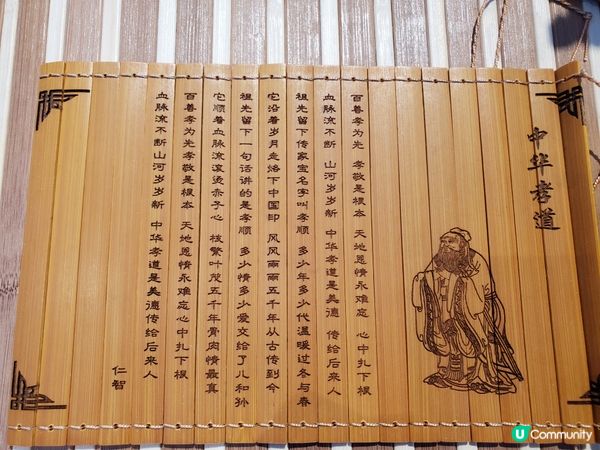 中华孝道
百善孝为先 孝敬是根本 天地恩情永难忘 心中扎下根
血脉流不断 山河岁岁新 中华孝道是美德 传给后来人
祖先留下传家宝名字叫孝顺 多少年多少代温暖过冬与春
它沿着岁月走烙下中国印 风风雨雨五千年从古传到今
祖先留下一句话讲的是孝顺 多少情多少爱交给了儿和孙
它顺着血脉流滚烫赤子心 枝繁叶茂五千年骨肉情最真
百善孝为先孝敬是根本 天地恩情永难忘心中扎下根
血脉流不断山河岁岁新 中华孝道是美德传给后来人
仁智
U Community